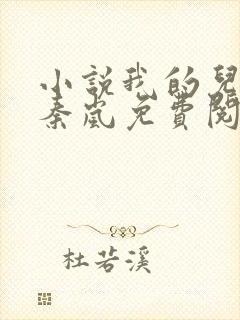 小説我的兒
秦嵐免費閱
杜若溪